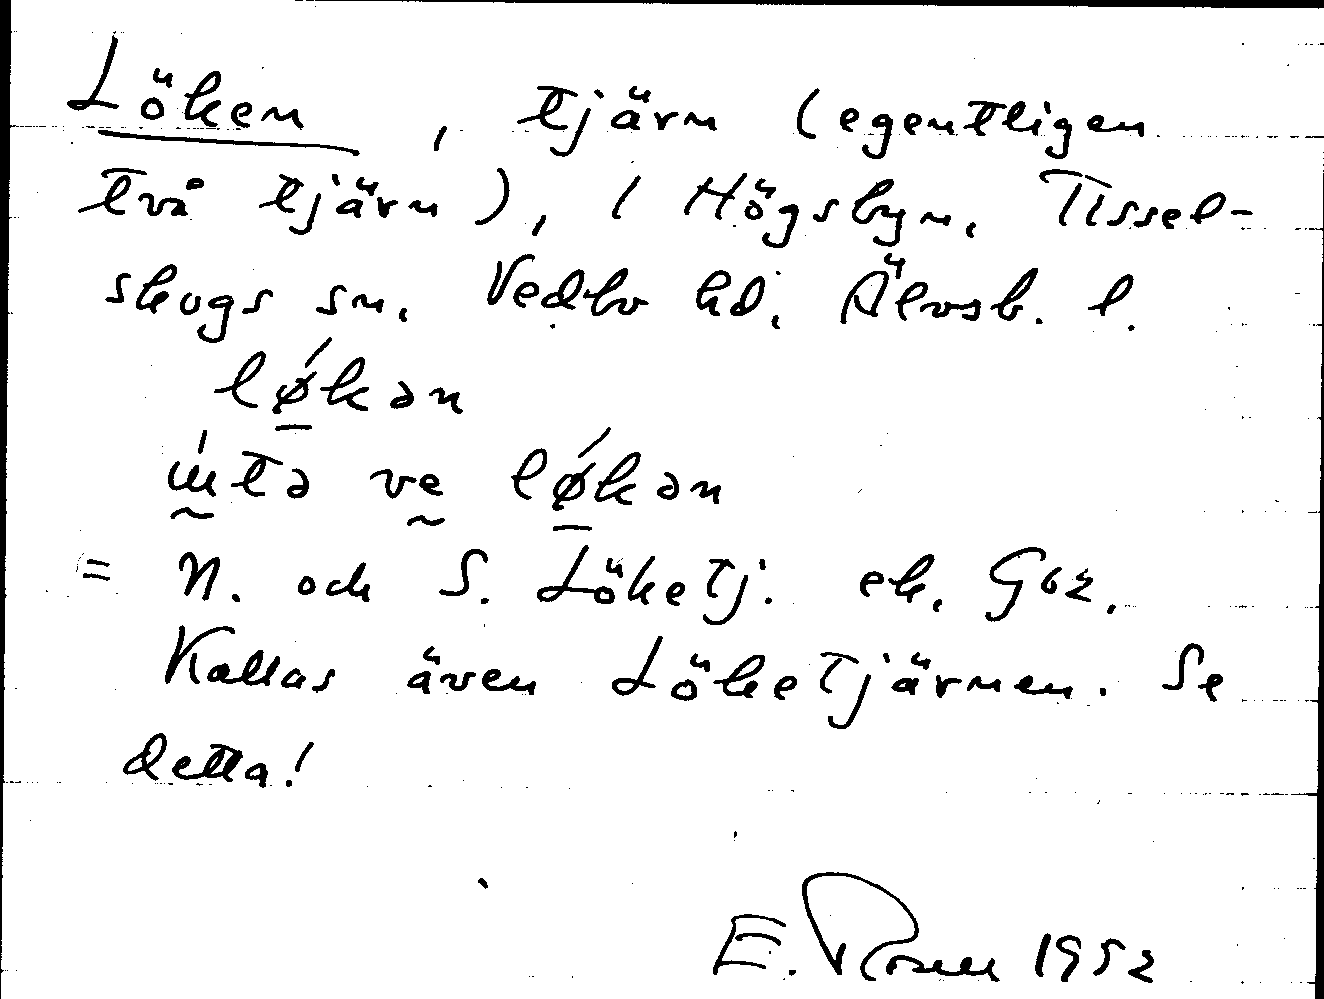 Löken, tjärn (egentligen
två tjärn), i Högsbyn, Tissel-
skogs sn, Vedbo hd, Älvsb. l.
lǿkən
ú̃tə ve lǿkən
= N. och S. Löketj. ek. G62.
Kallas även Löketjärnen. Se
detta!
E. Rosell 1952